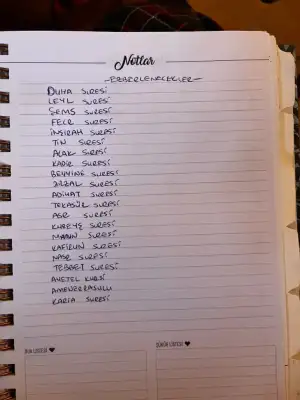 Notlar
-EZBERLENECEKLER-
DUHA SURESİ
LEYL SURESİ
ŞEMS SURESİ
FECR SURESİ
İNŞİRAH SURESİ
TİN SURESİ
ALAK SURESİ
KADİR SURESİ
BEYYİNE SURESİ
ZİLZAL SURESİ
ADİYAT SURESİ
TEKASÜR SURESİ
ASR SURESİ
KUREYŞ SURESİ
MAUN SURESİ
KAFİRUN SURESİ
NASR SURESİ
TEBBET SURESİ
AYETEL KURSİ
AMENERRASULU
KARİA SURESİ